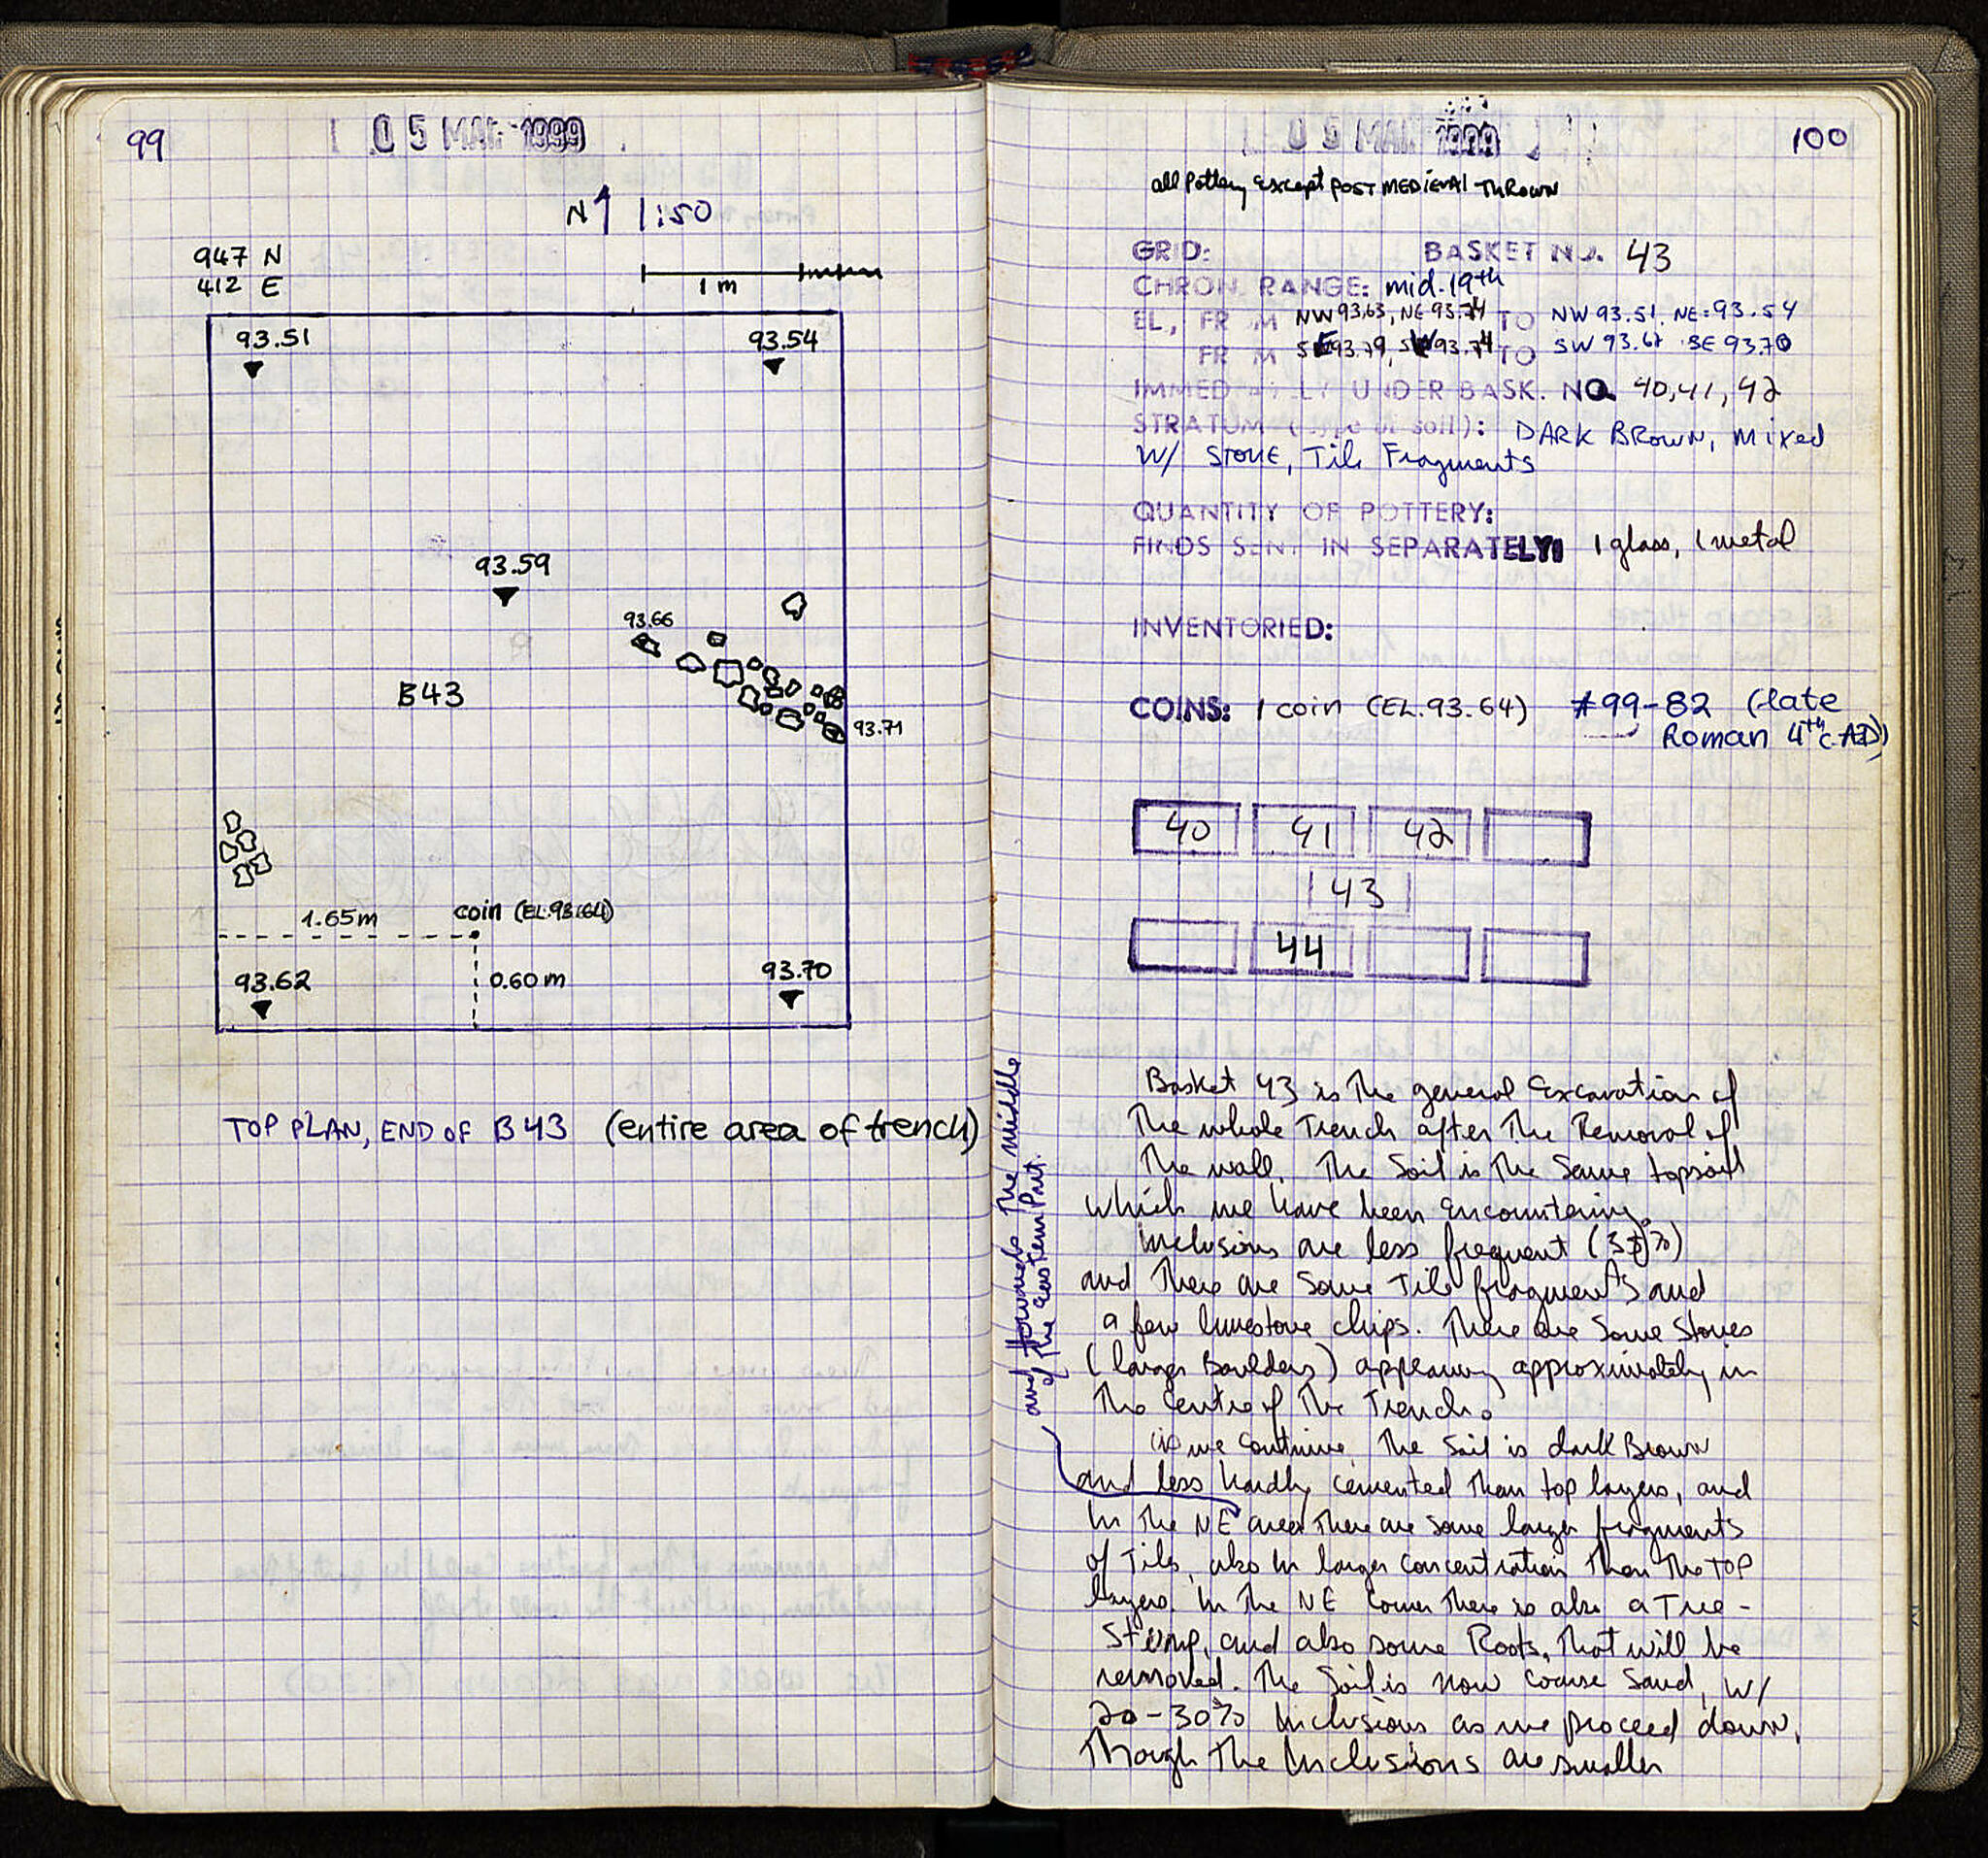 99
05 MAR 1999
N 1:50
947 N
412 E
1 m
93.51
93.54
93.59
93.66
B43
93.71
1.65m
coin (EL.93.64)
93.62
0.60m
93.70
TOP PLAN, END OF B43 (entire area of trench)
MAR 1999
100
all Pottery Except POST MEDIEVAL THROWN
GRID: BASKET NO. 43
CHRON. RANGE: mid.19th
EL, FROM NW 93.63, NE 93.74 TO NW 93.51, NE=93.54
FROM SE 93.79, SW 93.74 TO SW 93.62 SE 93.70
IMMEDIATELY UNDER BASK. NO. 40,41,42
STRATUM (type of soil): DARK BROWN, Mixed
W/ STONE, Tile Fragments
QUANTITY OF POTTERY:
FINDS SENT IN SEPARATELY: 1 glass, 1 metal
INVENTORIED:
COINS: 1 coin (EL.93.64) #99-82 (late
Roman 4th c. AD)
40 41 42
43
44
Basket 43 is The general Excavation of
The whole Trench after The Removal of
The wall. The Soil is The Same topsoil
which we have been encountering.
Inclusions are less frequent
and There are Some Tile fragments and
a few limestone chips. There are Some Stones
(larger Boulders) appearing approximately in
The Centre of The Trench.
and towards The middle
of The eastern Part.
As we continue, The Soil is dark Brown
and less hardly cemented Than top layers, and
In The NE area There are some larger fragments
of Tile, also in larger concentration Than The TOP
layers. In The NE Corner There is also a Tree-
Stump, and also some Roots, That will be
removed. The Soil is now Coarse Sand, W/
20-30% Inclusions as we proceed down,
Though The Inclusions are smaller